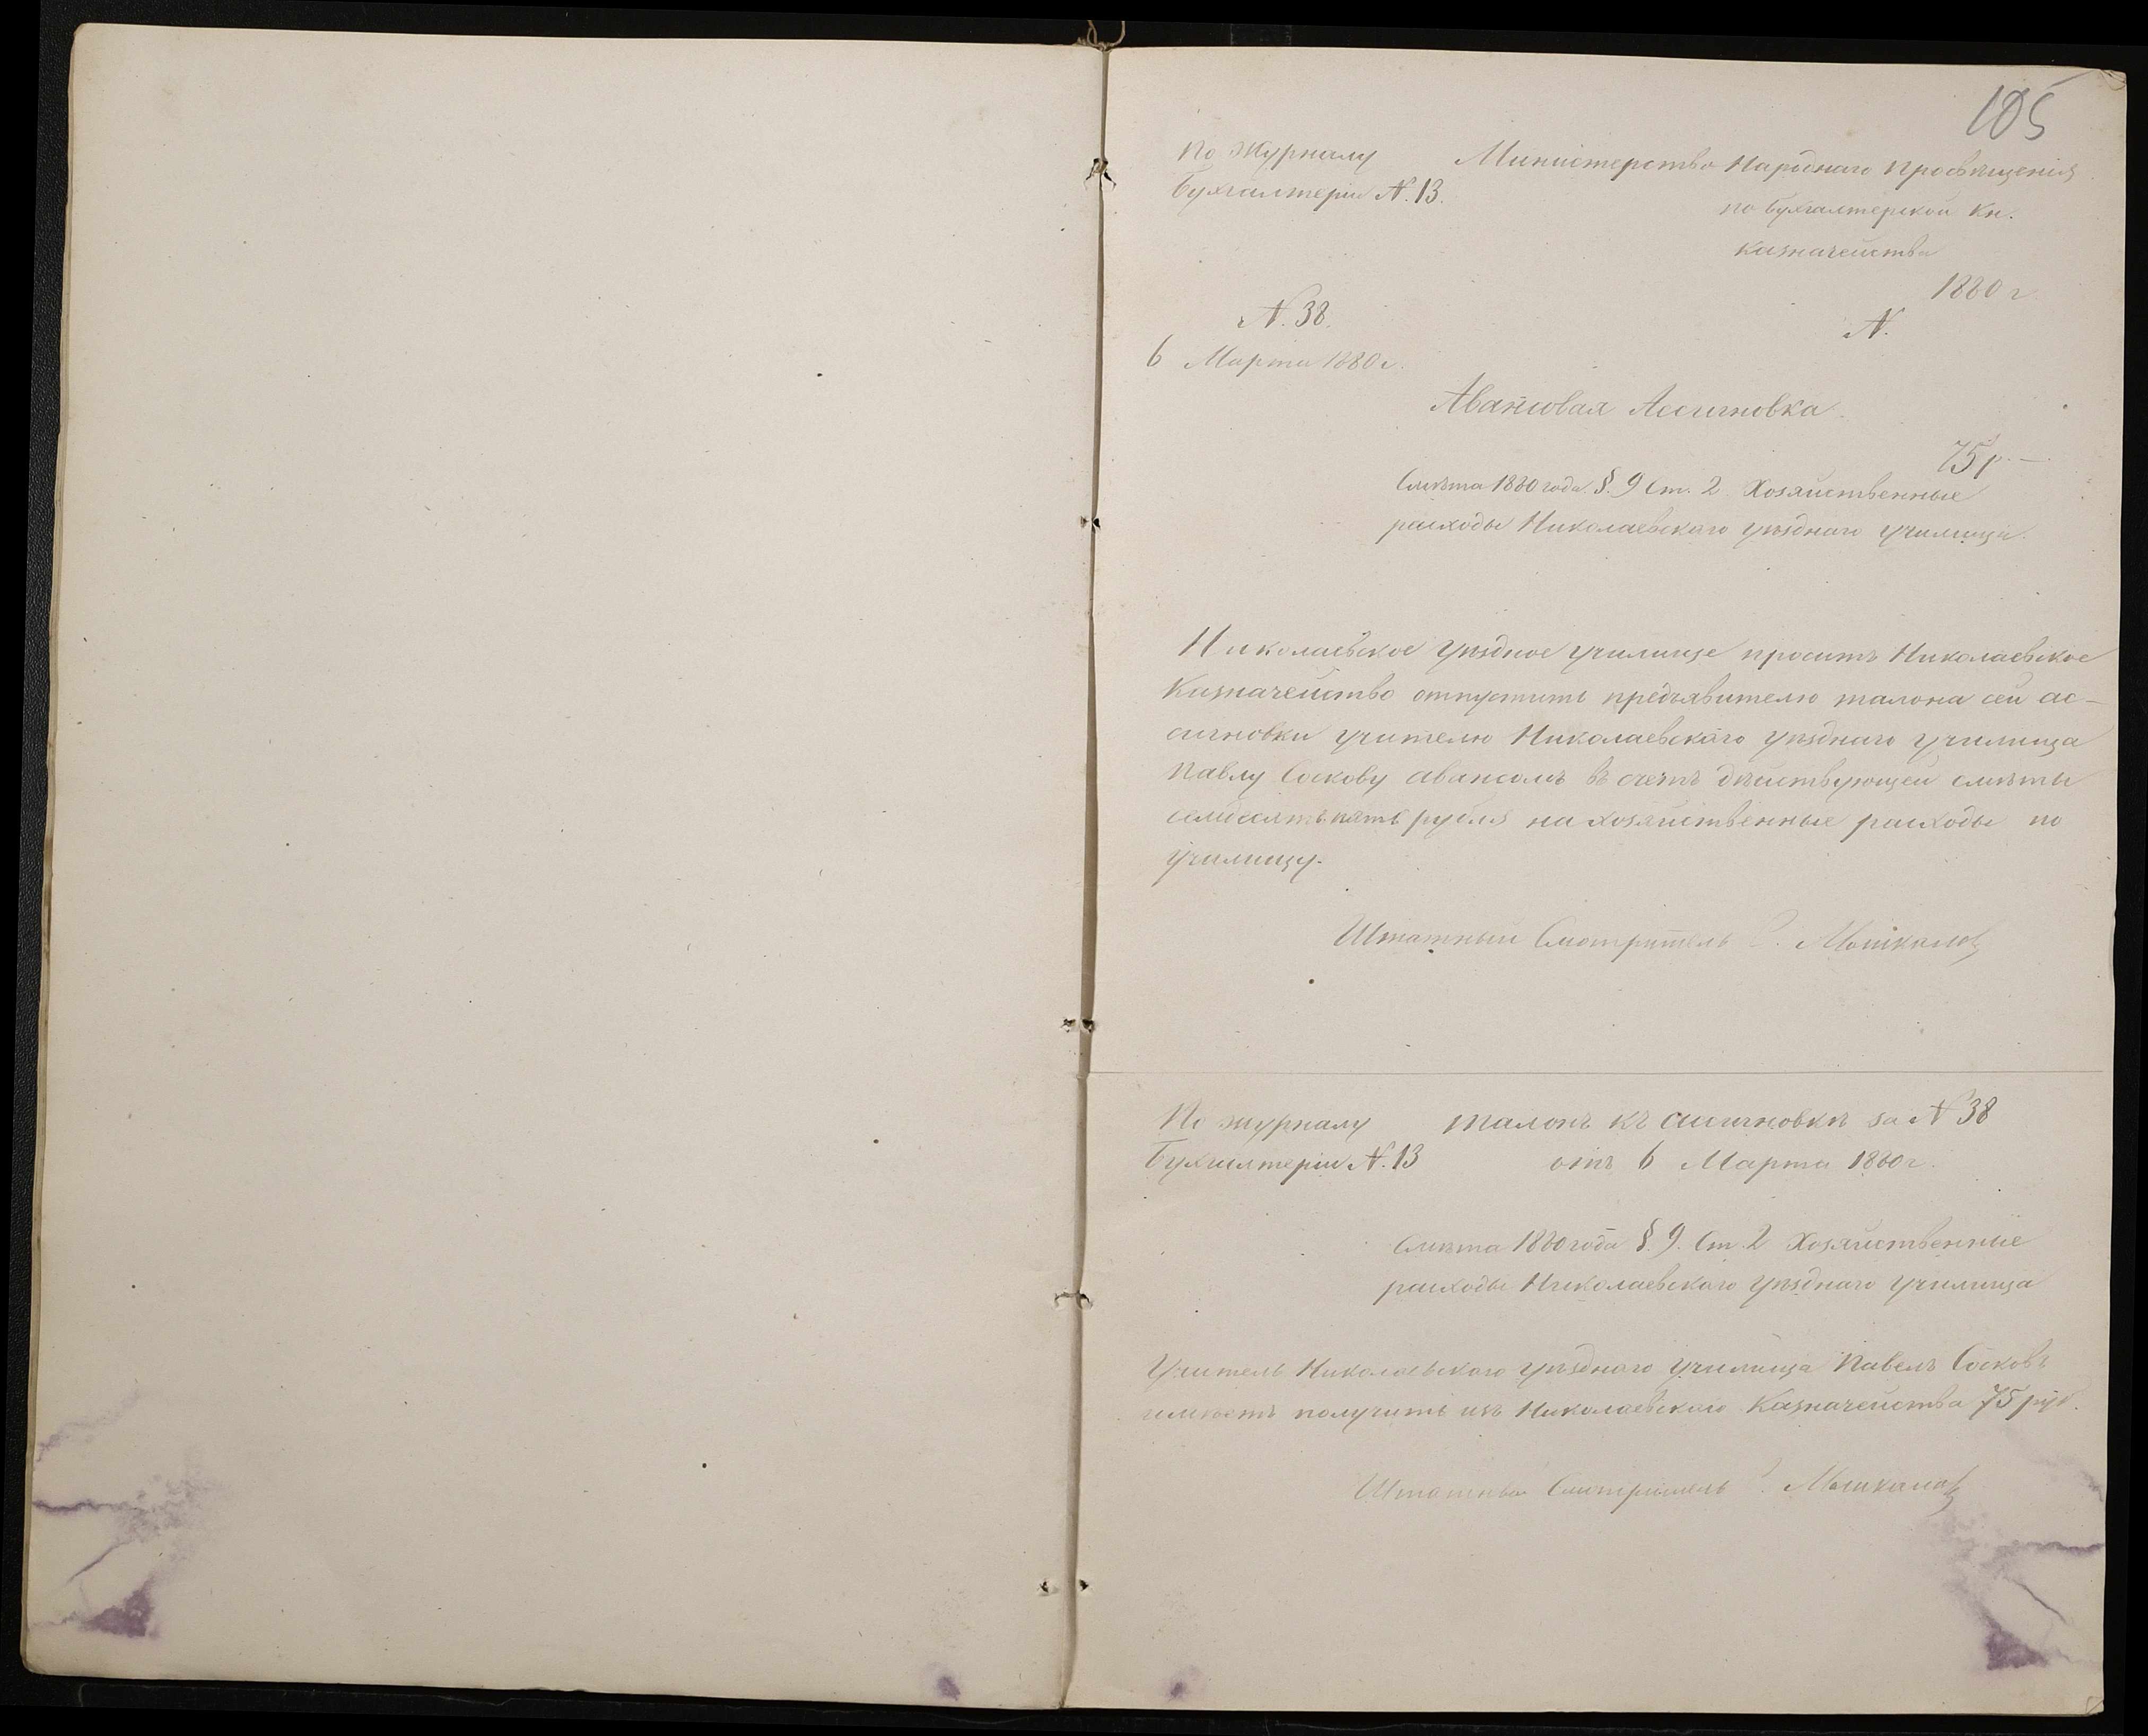 105
По журналу
Бухгалтеріи №. 13.
Министерство Народнаго Просвѣщенія
по бухгалтерской кн.
казначейства
1880 г
№.
№. 38.
6 Марта 1880 г.
Авансовая Ассигновка.
75 р. —
Смѣта 1880 года §. 9 Ст. 2. Хозяйственные
расходы Николаевскаго уѣзднаго училища.
Николаевское уѣздное училище проситъ Николаевское
Казначейство отпустить предъявителю талона сей ас-
сигновки учителю Николаевскаго уѣзднаго училища
Павлу Соскову авансомъ въ счетъ дѣйствующей смѣты
семдесятъ пять рубля на хозяйственные расходы по
училищу.
Штатный Смотритель Мышкалов
По журналу
Бухгалтеріи №. 13
талонъ къ ассигновкѣ за № 38
отъ 6 Марта 1880 г.
Смѣта 1880 года §. 9. Ст. 2 Хозяйственные
расходы Николаевскаго уѣзднаго училища
Учитель Николаевскаго уѣзднаго училища Павелъ Сосковъ
имѣетъ получить изъ Николаевскаго Казначейства 75 руб.
Штатный Смотритель Мышкалов